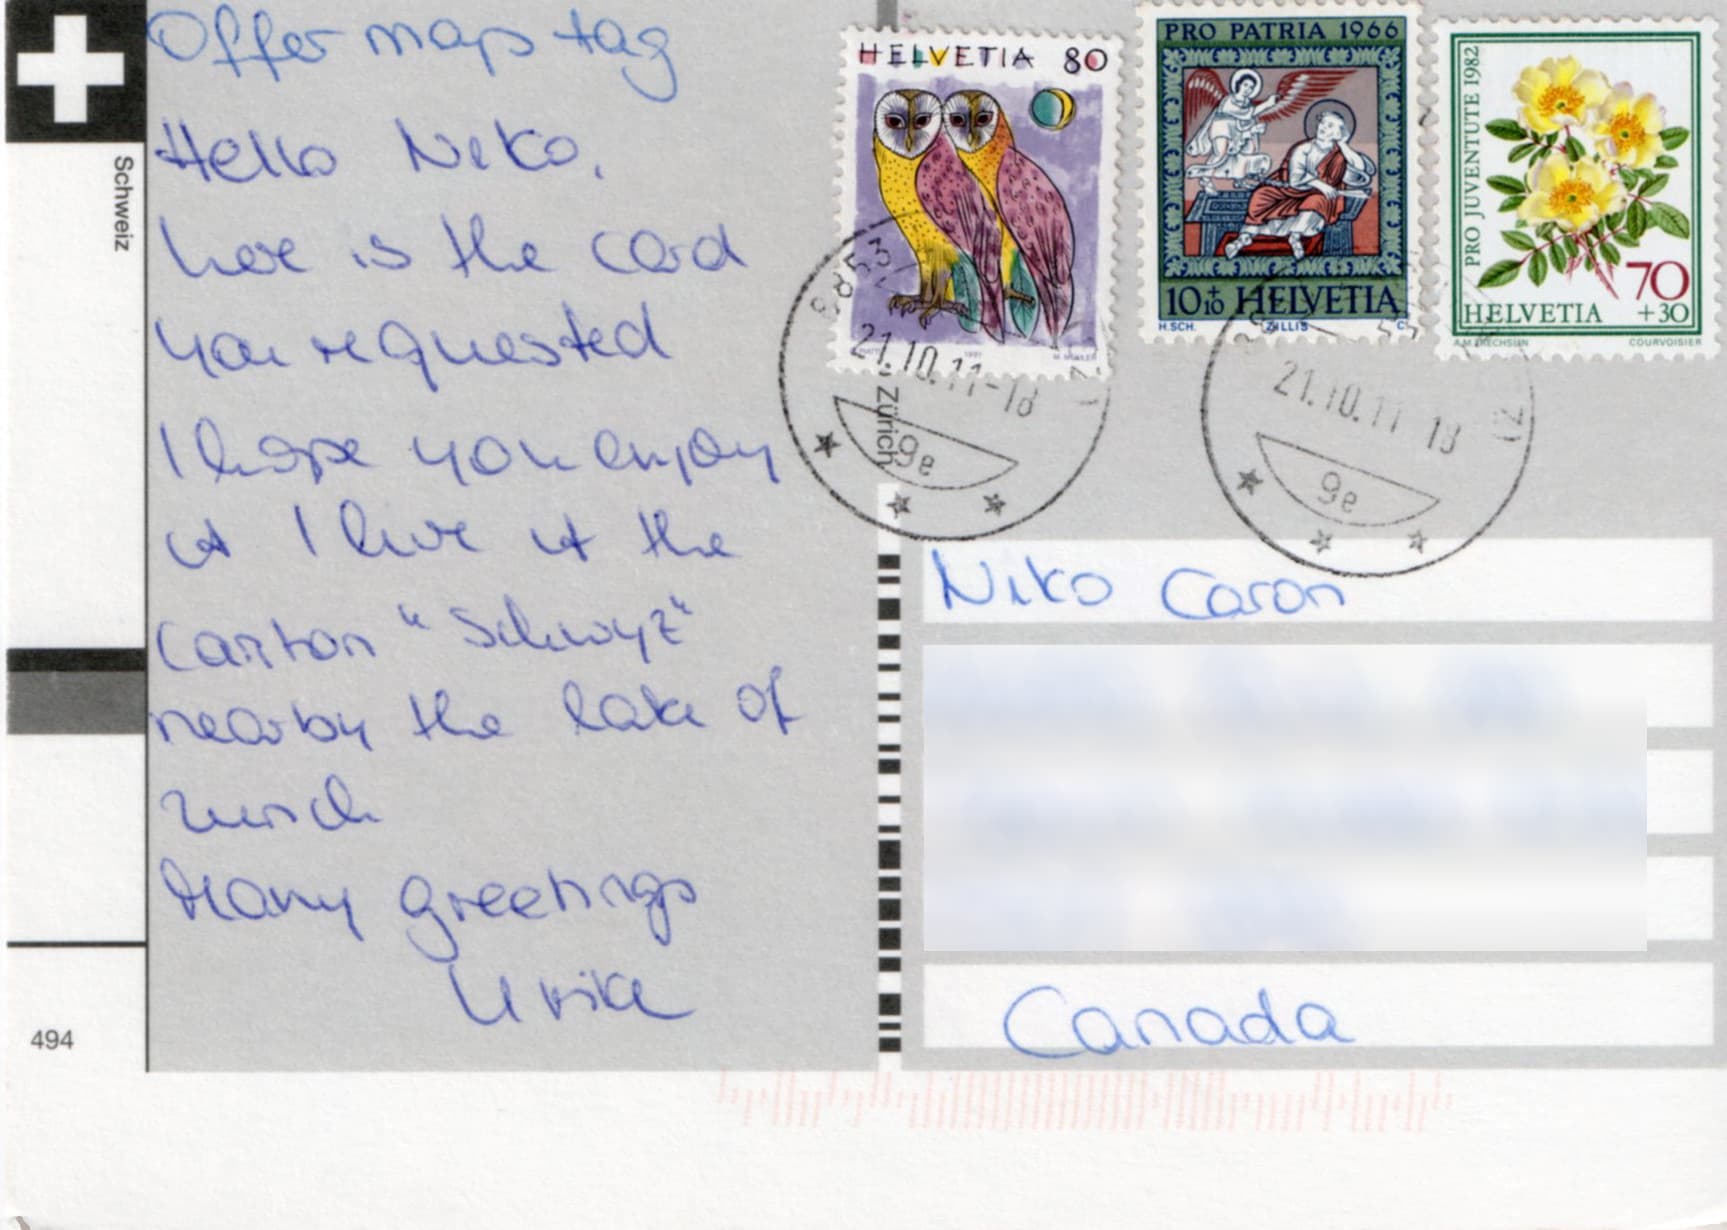 Offer map tag
Hello Niko,
here is the card
you requested
I hope you enjoy
it I live at the
canton "Schwyz"
nearby the lake of
Zurich
Many greetings
Ulrike
Schweiz
494
HELVETIA 80
PRO PATRIA 1966
10+10 HELVETIA
H.SCH. ZILLIS C
PRO JUVENTUTE 1982
70
HELVETIA +30
COURVOISIER
8853
21.10.11-18
9e
Zürich
21.10.11-18
9e
Niko Caron
Canada